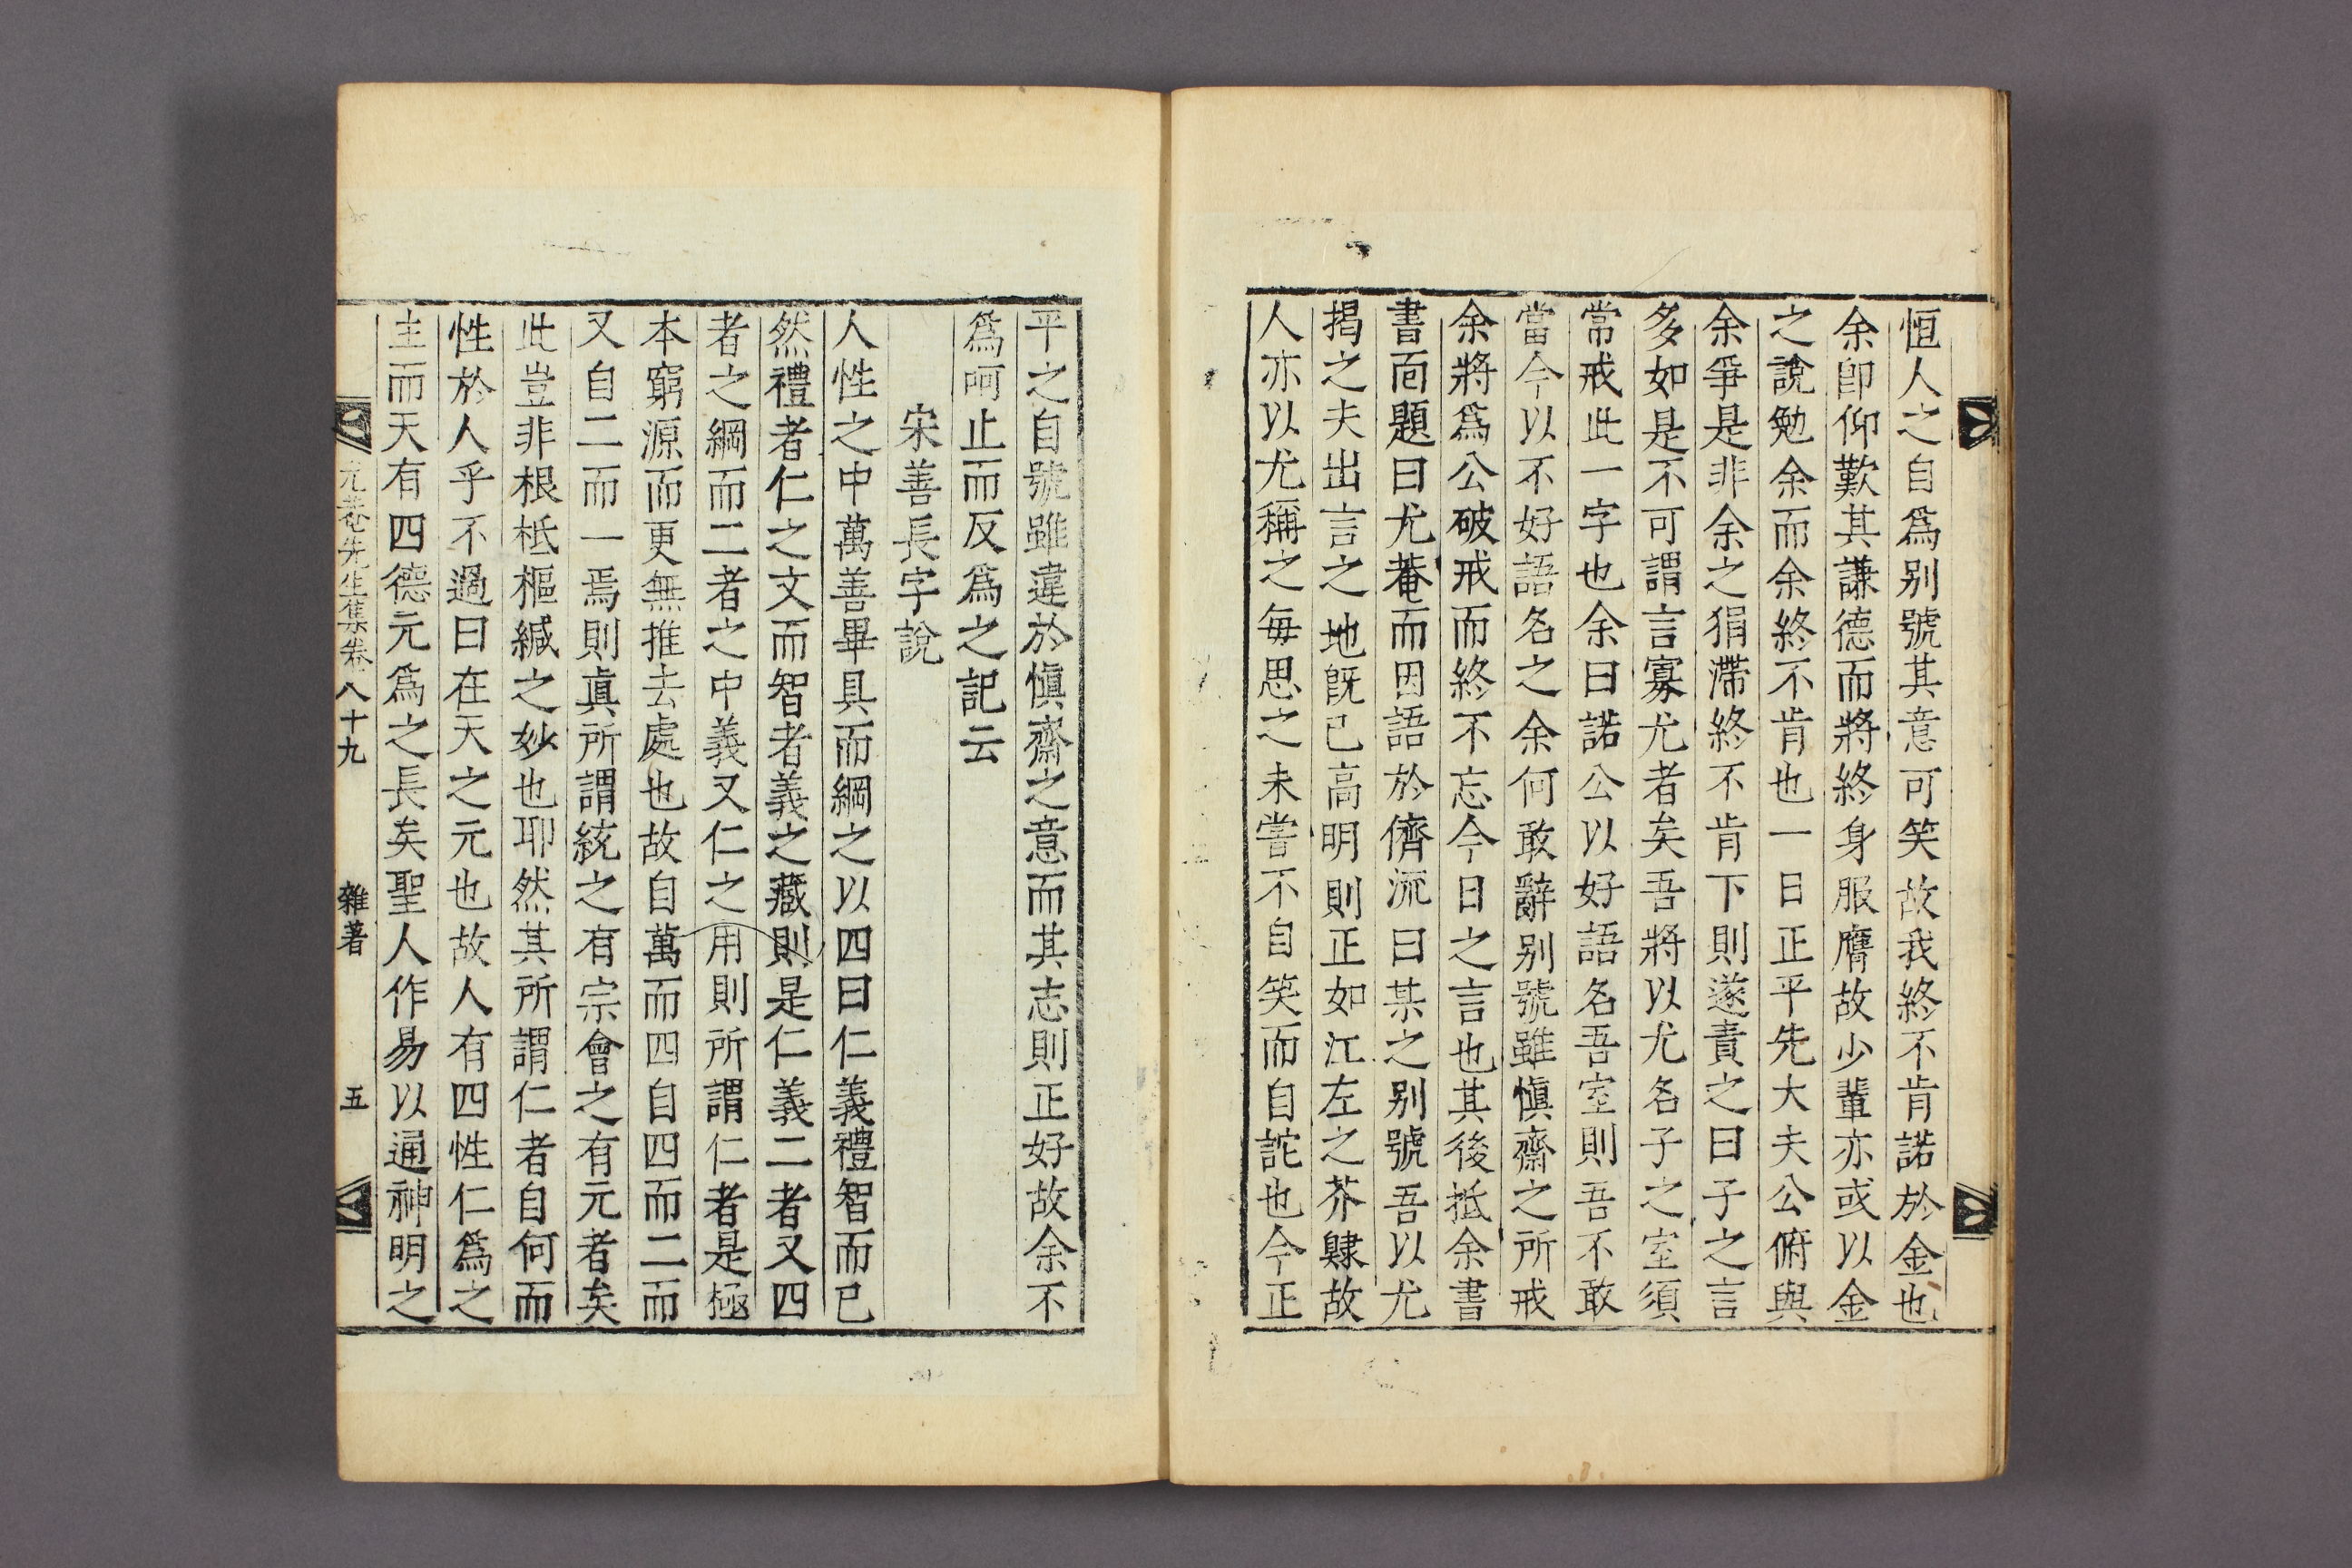 恒人之自爲别號其意可笑故我終不肯諾於金也
余卽仰歎其謙德而將終身服膺故少輩亦或以金
之說勉余而余終不肯也一日正平先大夫公俯與
余爭是非余之狷滯終不肯下則遂責之曰子之言
多如是不可謂言寡尤者矣吾將以尤名子之室須
常戒此一字也余曰諾公以好語名吾室則吾不敢
當今以不好語名之余何敢辭别號雖愼齋之所戒
余將爲公破戒而終不忘今日之言也其後抵余書
書面題曰尤菴而因語於儕流曰某之别號吾以尤
揭之夫出言之地旣已高明則正如江左之芥隸故
人亦以尤稱之每思之未嘗不自笑而自詑也今正
平之自號雖違於愼齋之意而其志則正好故余不
爲呵止而反爲之記云
宋善長字說
人性之中萬善畢具而綱之以四曰仁義禮智而已
然禮者仁之文而智者義之藏則是仁義二者又四
者之綱而二者之中義又仁之用則所謂仁者是極
本窮源而更無推去處也故自萬而四自四而二而
又自二而一焉則眞所謂統之有宗會之有元者矣
此豈非根柢樞緘之妙也耶然其所謂仁者自何而
性於人乎不過曰在天之元也故人有四性仁爲之
主而天有四德元爲之長矣聖人作易以通神明之
尤菴先生集卷八十九 雜著 五